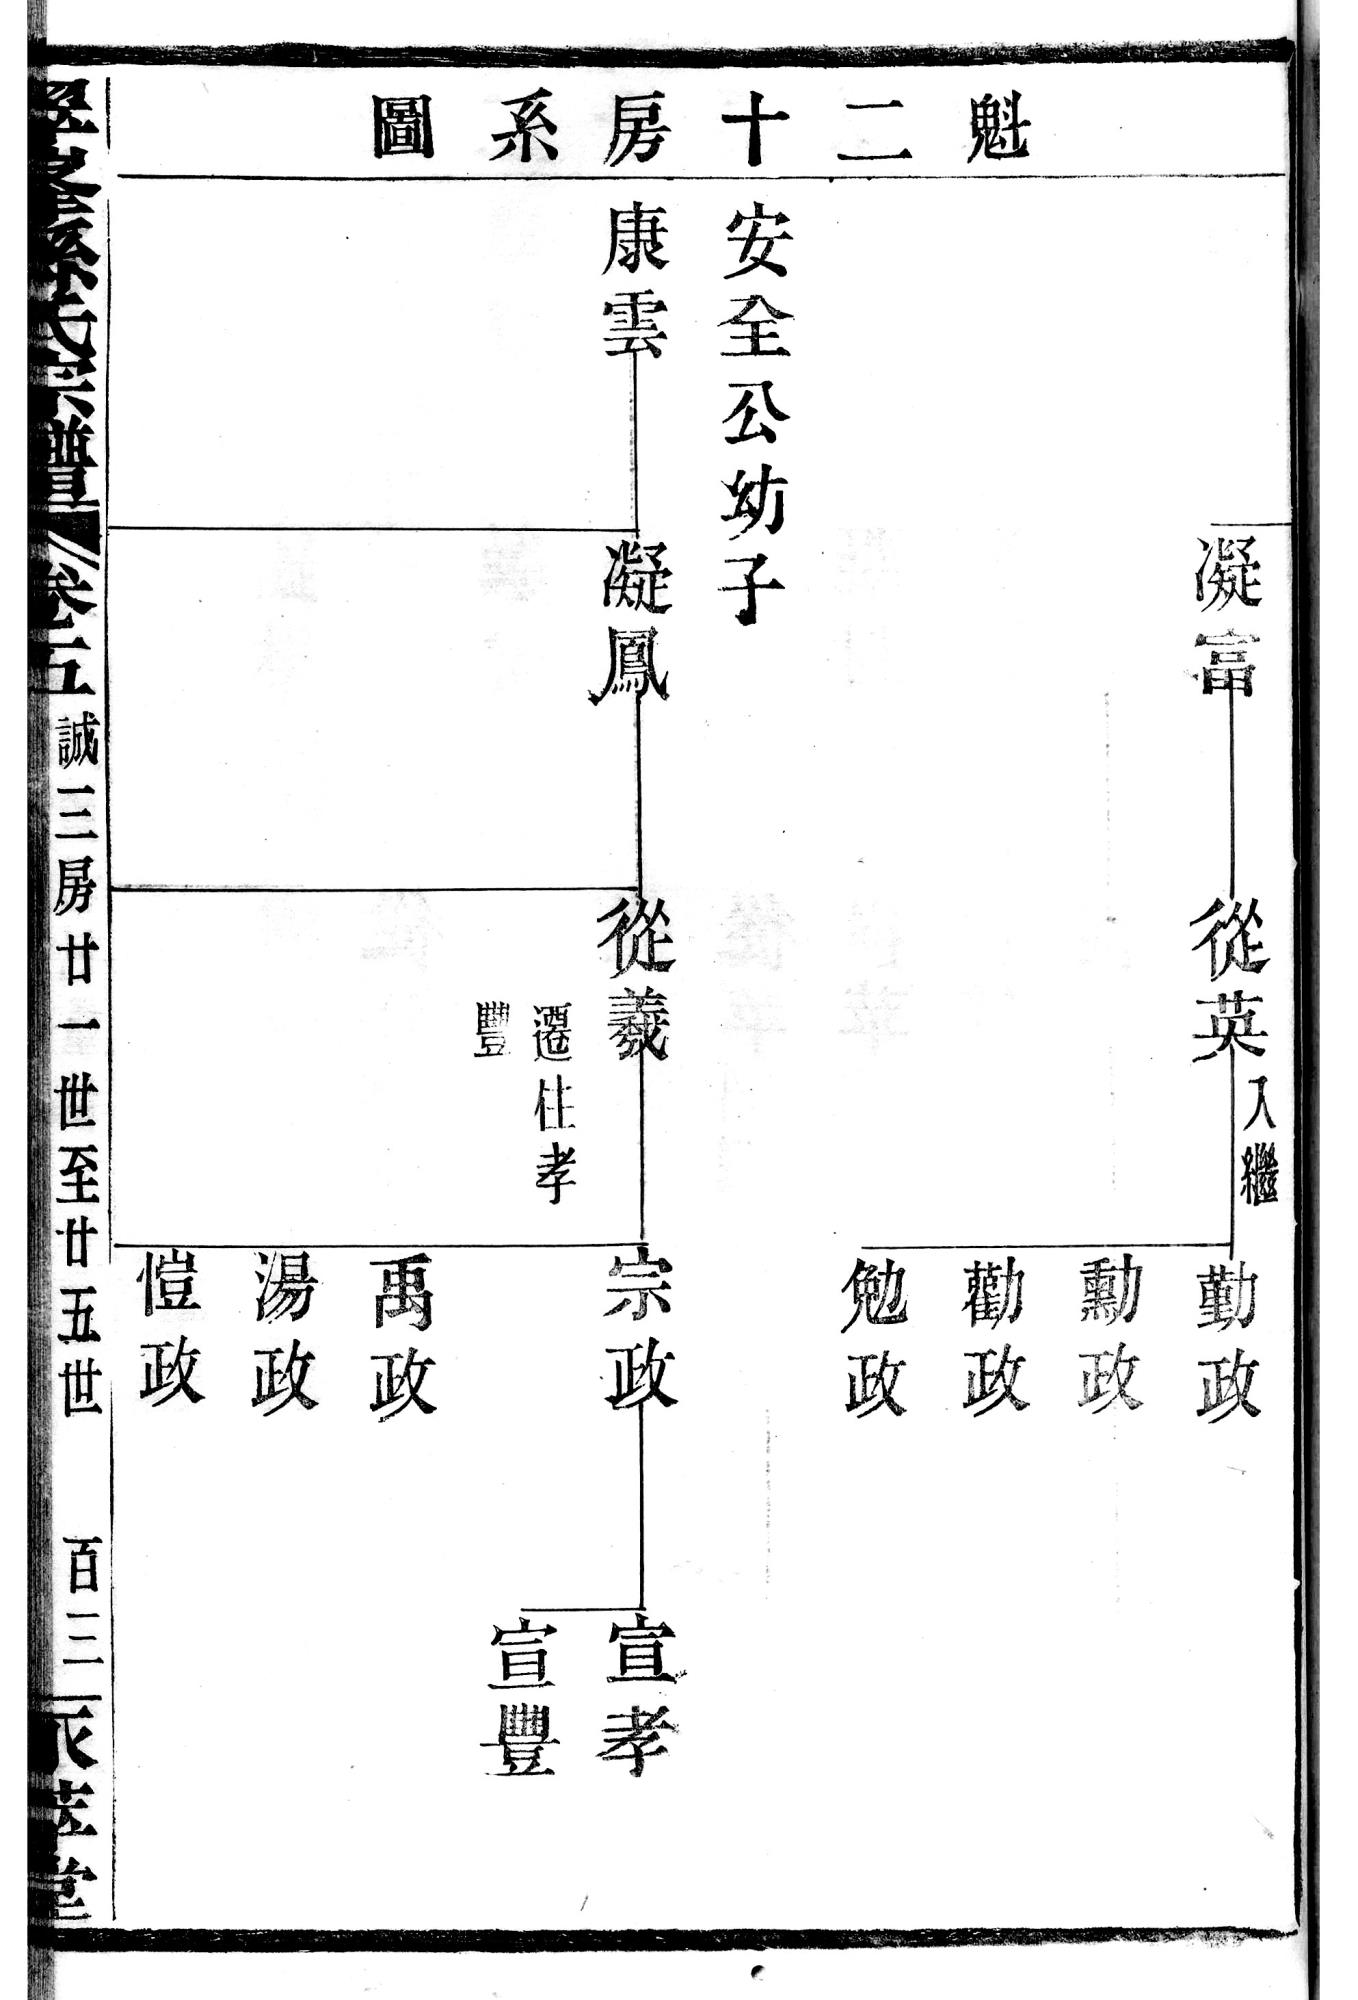 魁二十房系圖
凝富
從英
入繼
勤政
勳政
勸政
勉政
安全公幼子
康雲
凝鳳
從羲
遷住孝
豐
宗政
禹政
湯政
愷政
宣孝
宣豐
孫氏宗譜
卷五
誠三房廿一世至廿五世
百三
堂